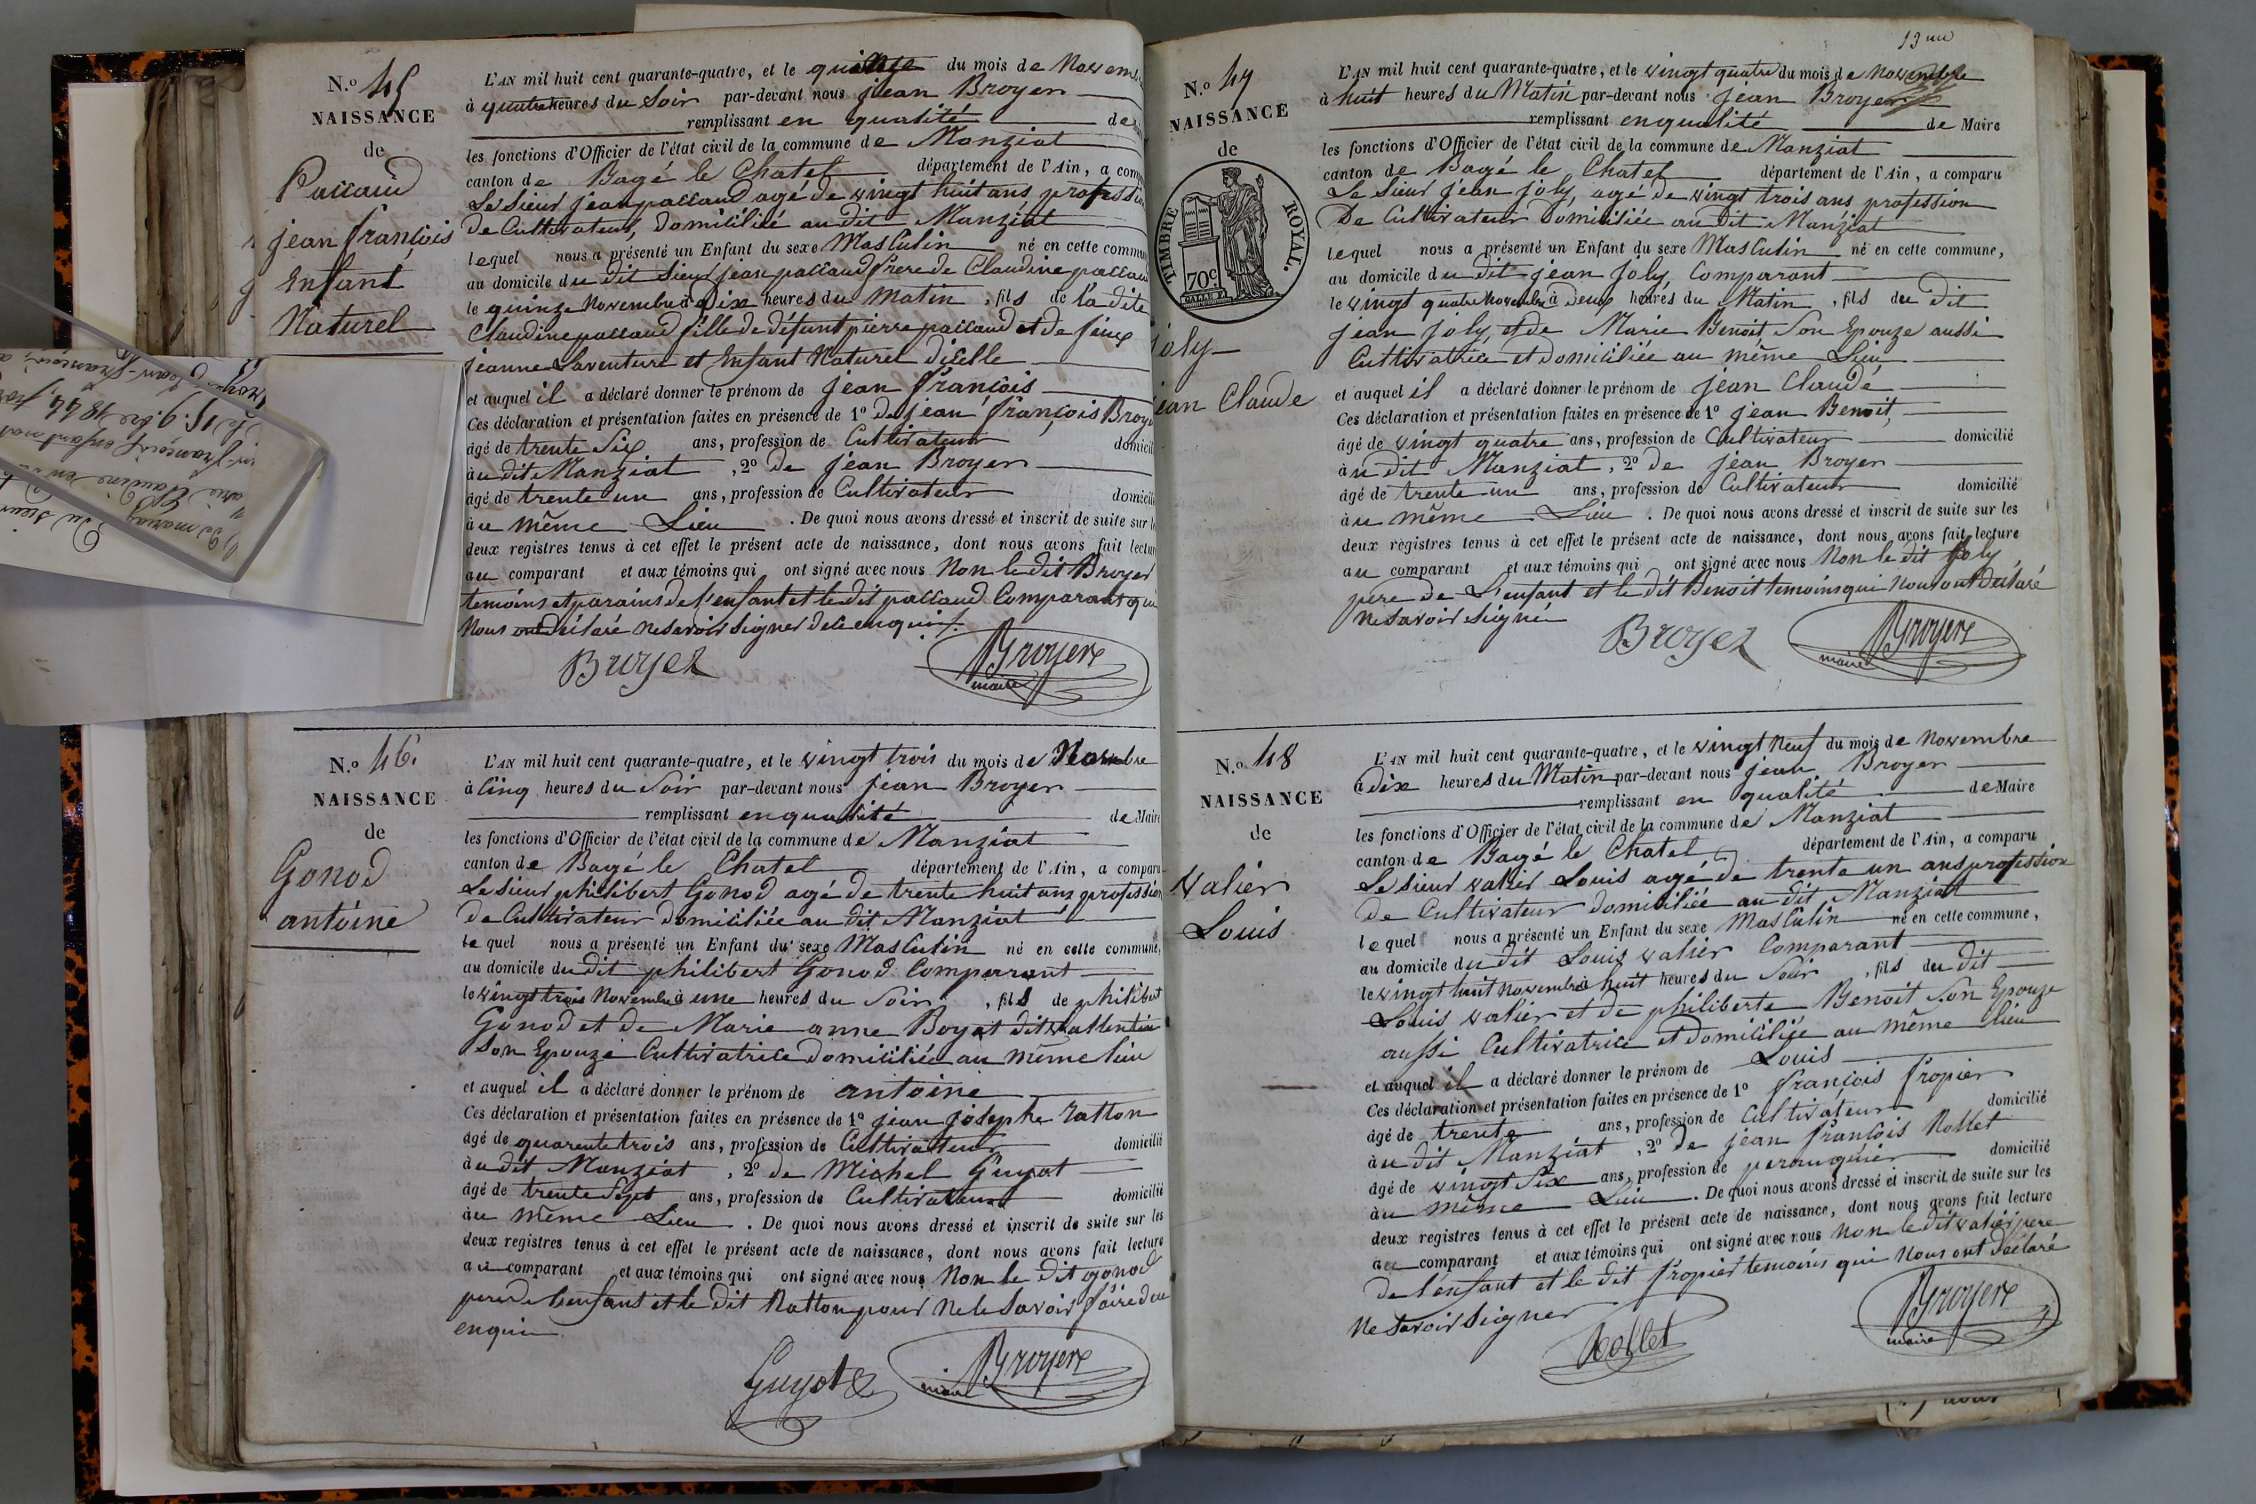 N.o 45
NAISSANCE
de
Paccaud
jean françois
Enfant
Naturel
L'AN mil huit cent quarante-quatre, et le quinze du mois de Novem
à quatre heures du Soir par-devant nous jean Broyer
remplissant en qualité de
les fonctions d'Officier de l'état civil de la commune de Manziat
canton de Bagé le Chatel département de l'Ain, a comp
Le Sieur jean paccaud agé de vingt huit ans profession
de Cultivateur, domiciliée au dit Manziat
lequel nous a présenté un Enfant du sexe Masculin né en cette commun
au domicile du dit Sieur jean paccaud frere de Claudine paccaud
le quinze Novembre à Dix heures du Matin, fils de la dite
Claudine paccaud fille de défunt pierre paccaud et de feux
jeanne Laventure et Enfant Naturel diselle
et auquel il a déclaré donner le prénom de jean françois
Ces déclaration et présentation faites en présence de 1o de jean françois Broye
âgé de trente Six ans, profession de Cultivateur domicil
à u dit Manziat, 2o de jean Broyer
âgé de trente un ans, profession de Cultivateur domicilié
à u même Lieu. De quoi nous avons dressé et inscrit de suite sur le
deux registres tenus à cet effet le présent acte de naissance, dont nous avons fait lectur
au comparant et aux témoins qui ont signé avec nous Non le dit Broyer
temoins et parains de l'enfant et le dit paccaud Comparant qui
Nous ont Déclaré ne savoir signer de ce enquis
Broyer
Broyer
maire
N.o 46
NAISSANCE
de
Gonod
antoine
L'AN mil huit cent quarante-quatre, et le vingt trois du mois de Novembre
à Cinq heures du Soir par-devant nous jean Broyer
remplissant en qualité de Maire
les fonctions d'Officier de l'état civil de la commune de Manziat
canton de Bagé le Chatel département de l'Ain, a comparu
Le Sieur philibert Gonod agé de trente huit ans profession
de Cultivateur domiciliée au dit Manziat
le quel nous a présenté un Enfant du sexe Masculin né en cette commune,
au domicile du dit philibert Gonod Comparrant
le vingt trois Novembre à une heures du Soir, fils de philibert
Gonod et de Marie anne Boyat dit vallentin
Son Epouze Cultivatrice domiciliée au même lieu
et auquel il a déclaré donner le prénom de antoine
Ces déclaration et présentation faites en présence de 1o jean josephe Ratton
âgé de quarente trois ans, profession de Cultivateur domicilié
à u dit Manziat, 2o de Michel Guyot
âgé de trente Sept ans, profession de Cultivateur domicilié
à u même Lieu. De quoi nous avons dressé et inscrit de suite sur les
deux registres tenus à cet effet le présent acte de naissance, dont nous avons fait lecture
au comparant et aux témoins qui ont signé avec nous Non le dit gonod
pere de l'enfant et le dit Ratton pour ne le Savoir faire de ce
enquis
Guyot
Broyer
maire
13
N.o 47
NAISSANCE
de
TIMBRE ROYAL.
70c.
joly
jean Claude
L'AN mil huit cent quarante-quatre, et le vingt quatre du mois de Novembre
à huit heures du Matin par-devant nous jean Broyer
remplissant en qualité de Maire
les fonctions d'Officier de l'état civil de la commune de Manziat
canton de Bagé le Chatel département de l'Ain, a comparu
Le Sieur jean joly, agé de vingt trois ans profession
De Cultivateur domiciliée au dit Manziat
lequel nous a présenté un Enfant du sexe Masculin né en cette commune,
au domicile du dit jean joly Comparant
le vingt quatre Novembre à Deux heures du Matin, fils du dit
jean joly et de Marie Benoit Son Epouze aussi
Cultivatrice et domiciliée au même Lieu
et auquel il a déclaré donner le prénom de jean Claude
Ces déclaration et présentation faites en présence de 1o jean Benoit,
âgé de vingt quatre ans, profession de Cultivateur domicilié
à u dit Manziat, 2o de jean Broyer
âgé de trente un ans, profession de Cultivateur domicilié
à u même Lieu. De quoi nous avons dressé et inscrit de suite sur les
deux registres tenus à cet effet le présent acte de naissance, dont nous avons fait lecture
au comparant et aux témoins qui ont signé avec nous Non le dit joly
père de L'enfant et le dit Benoit temoins qui nous ont déclaré
ne savoir signé
Broyer
Broyer
maire
N.o 48
NAISSANCE
de
Valier
Louis
L'AN mil huit cent quarante-quatre, et le vingt Neuf du mois de Novembre
à Dix heures du Matin par-devant nous jean Broyer
remplissant en qualité de Maire
les fonctions d'Officier de l'état civil de la commune de Manziat
canton de Bagé le Chatel département de l'Ain, a comparu
Le sieur valier Louis agé de trente un ans profession
de Cultivateur domiciliée au dit Manziat
lequel nous a présenté un Enfant du sexe Masculin né en cette commune,
au domicile du dit Louis valier Comparant
le vingt huit Novembre à huit heures du Soir, fils du dit
Louis valier et de philiberte Benoit Son Epouze
aussi Cultivatrice et domiciliée au même lieu
et auquel il a déclaré donner le prénom de Louis
Ces déclaration et présentation faites en présence de 1o françois fropier
âgé de trente ans, profession de Cultivateur domicilié
à u dit Manziat, 2o de jean françois Rollet
âgé de vingt Six ans, profession de perouquier domicilié
à u même Lieu. De quoi nous avons dressé et inscrit de suite sur les
deux registres tenus à cet effet le présent acte de naissance, dont nous avons fait lecture
au comparant et aux témoins qui ont signé avec nous Non le dit valier pere
De l'enfant et le dit fropier temoins qui Nous ont déclaré
ne Savoir Signer
Rollet
Broyer
maire